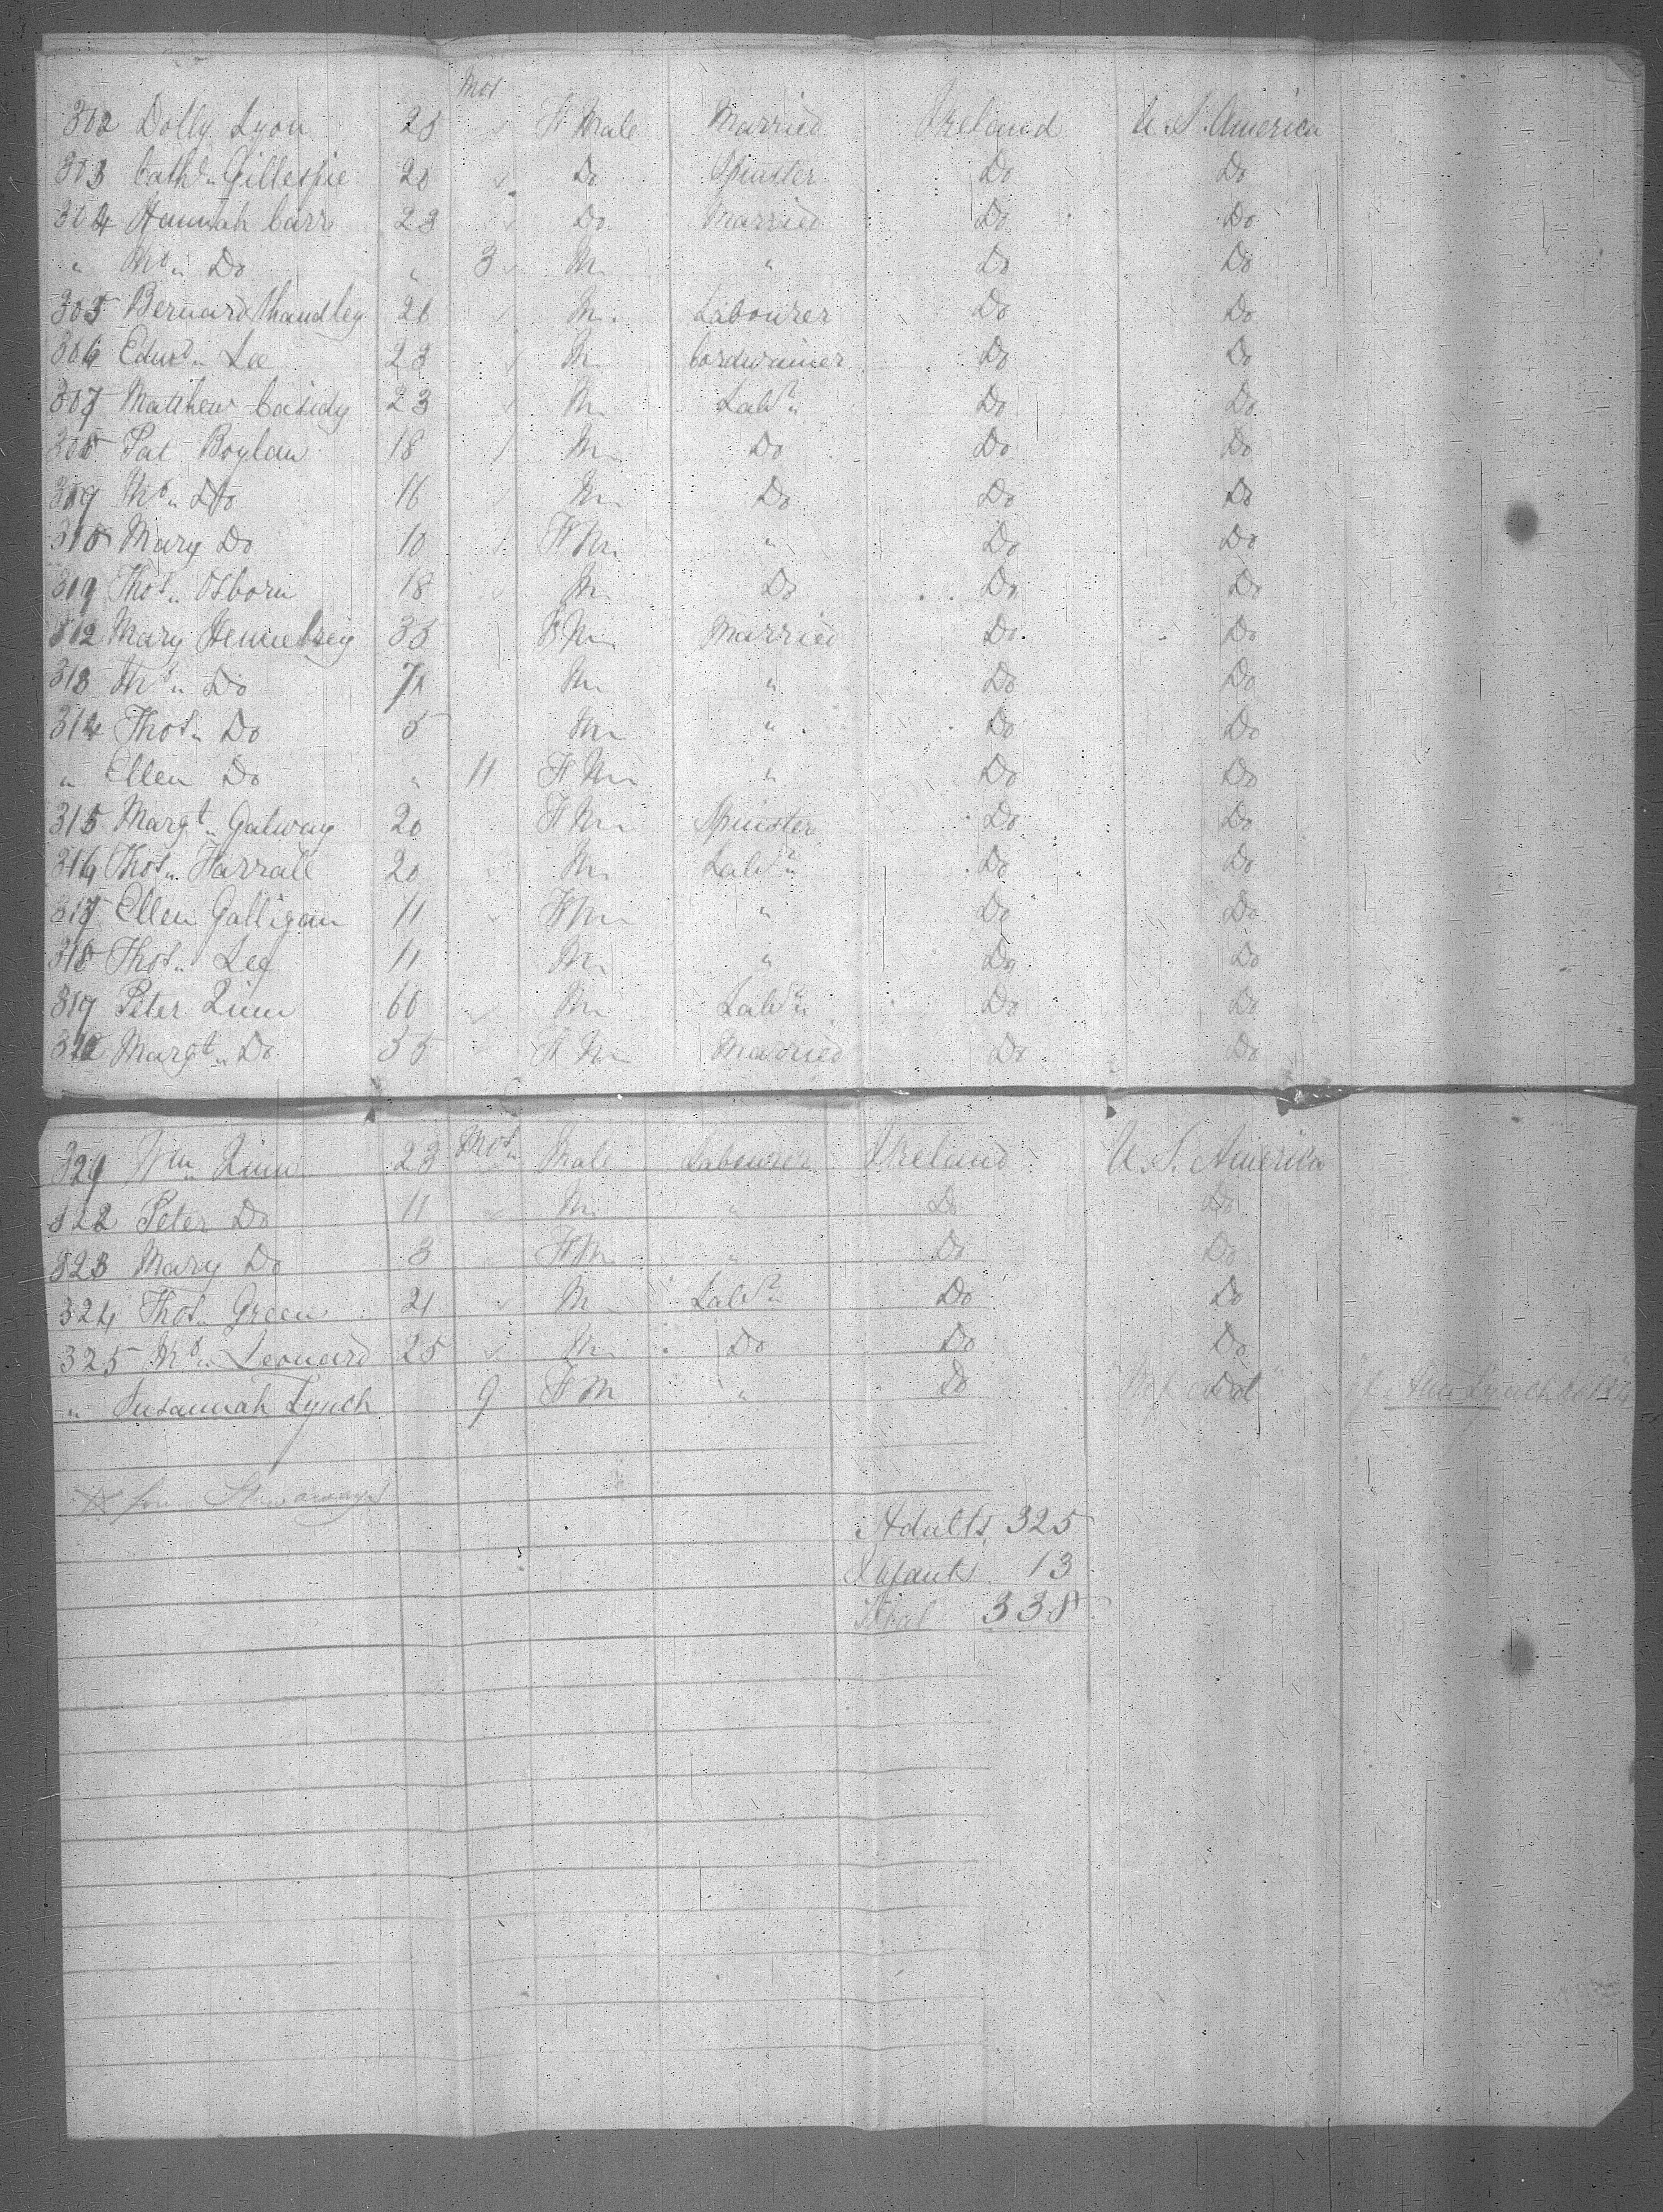 Mos
302 Dolly Lyon 28 F Male Married Ireland U.S. America
303 Cathn Gillespie 20 Do Spinster Do Do
304 Hannah Carr 23 Do Married Do Do
" Do " 3 M " Do Do
305 Bernard Handley 21 M Labourer Do Do
306 Edwd Lee 23 M Cordwainer Do Do
307 Matthew Casidy 23 M Labr Do Do
308 Pat Boylan 18 M Do Do Do
309 Do 16 M Do Do Do
310 Mary Do 10 F M " Do Do
Thos Osborn 18 M Do Do Do
312 Mary 35 F M Married Do Do
313 Do 7 M " Do Do
314 Thos Do 5 M " Do Do
" Ellen Do " 11 F M " Do Do
315 Margt Galway 20 F M Spinster Do Do
316 Thos Farrall 20 M Labr Do Do
317 Ellen Galligan 11 F M " Do Do
318 Thos Lee 11 M " Do Do
319 Peter Quinn 60 M Labr Do Do
320 Margt Do 55 F M Married Do Do
Mos
321 Wm Quinn 23 Male Labourer Ireland U.S. America
322 Peter Do 11 M " Do Do
323 Mary Do 3 F M " Do Do
324 Thos Green 21 M Labr Do Do
325 Leonard 25 M Do Do Do
" Susannah Lynch 9 F M " Do of Ann Lynch
Stowaways
Adults 325
Infants 13
Total 338